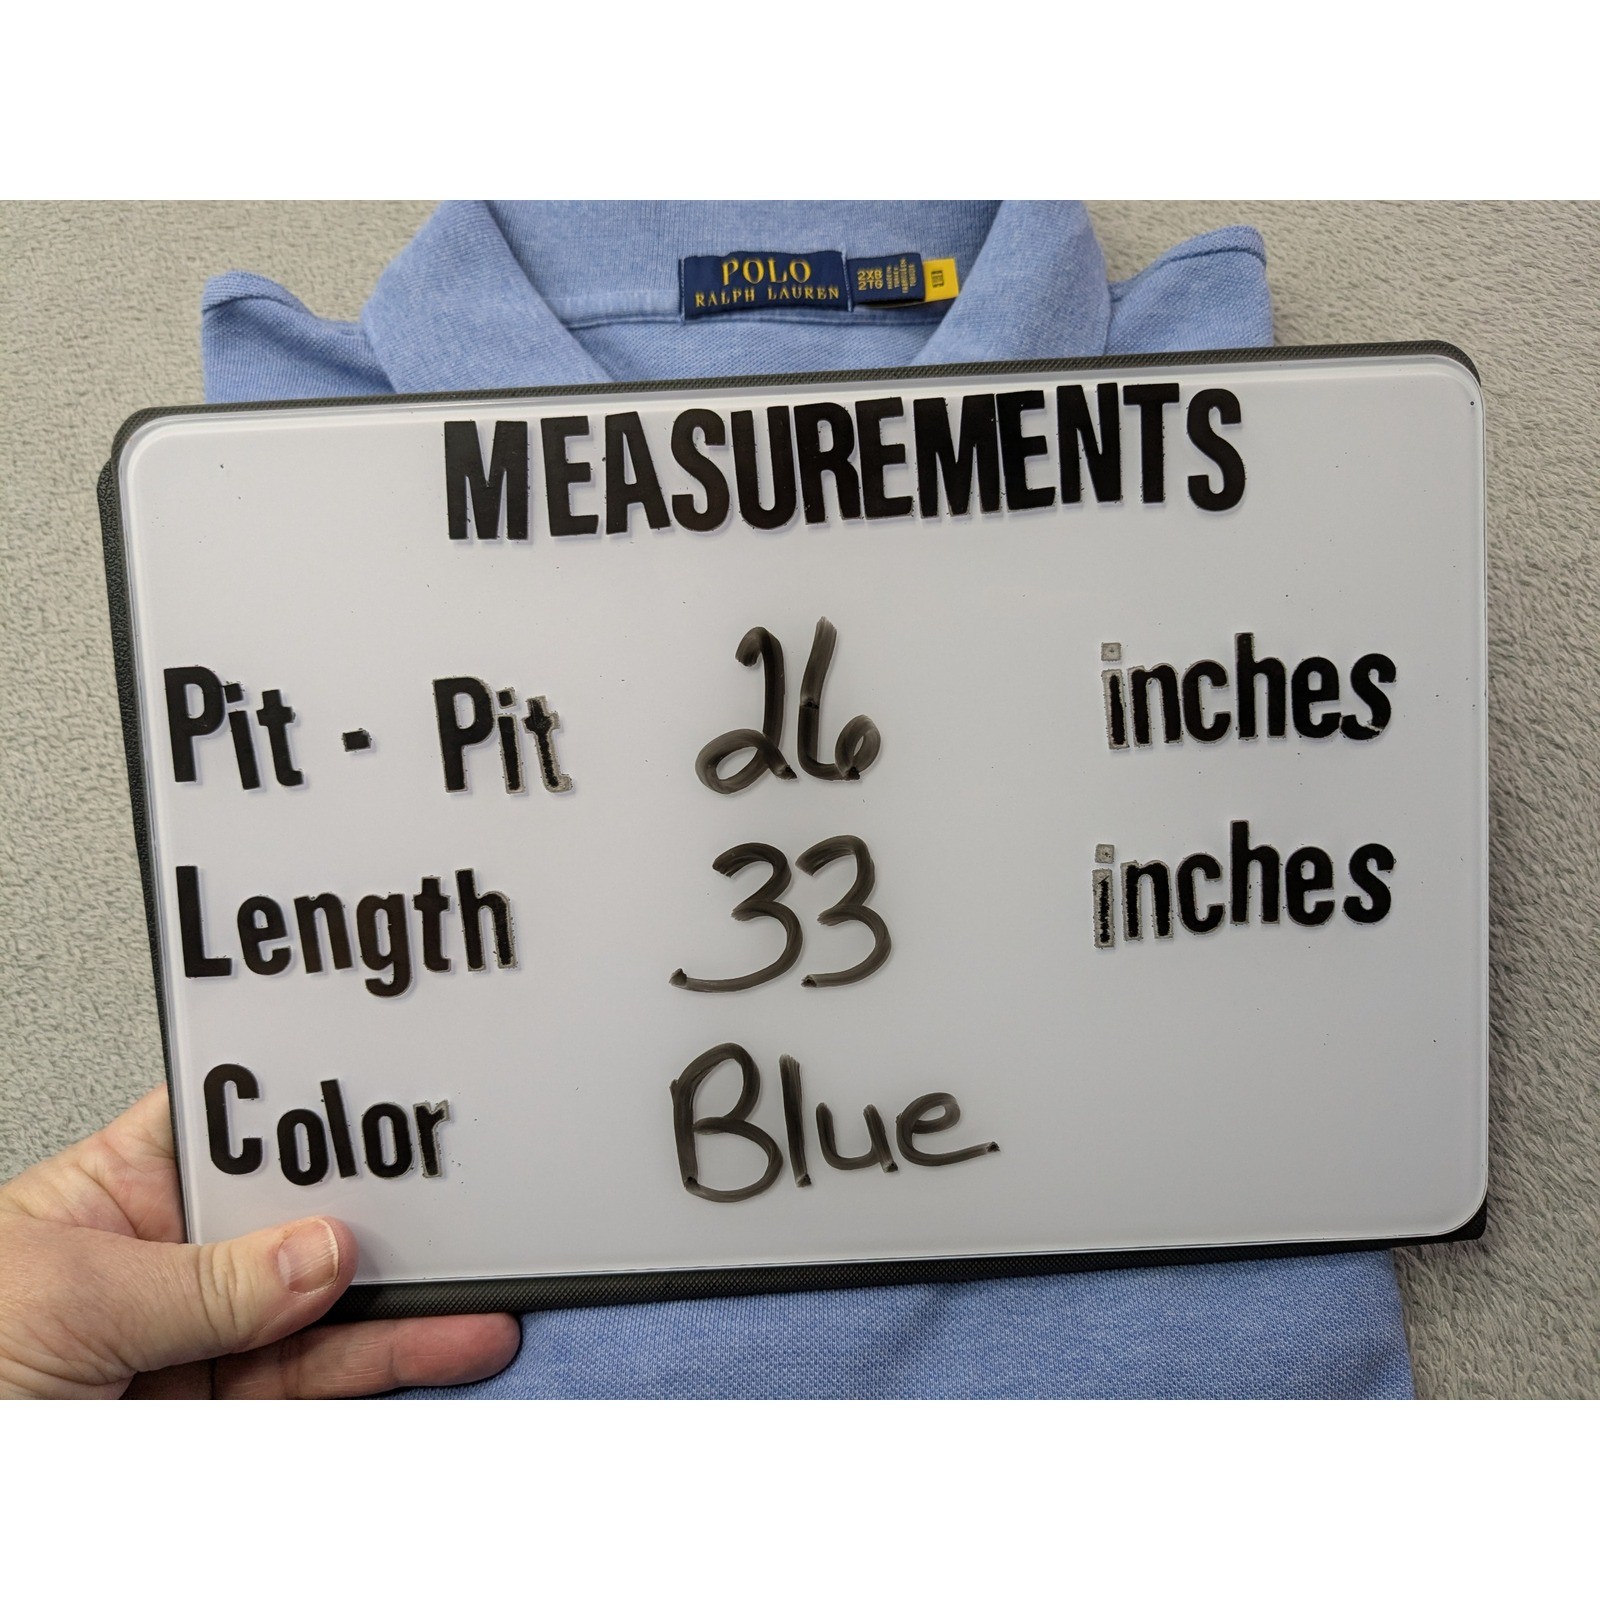 POLO
RALPH LAUREN
2XB
2TG
MEASUREMENTS
Pit - Pit 26 inches
Length 33 inches
Color Blue